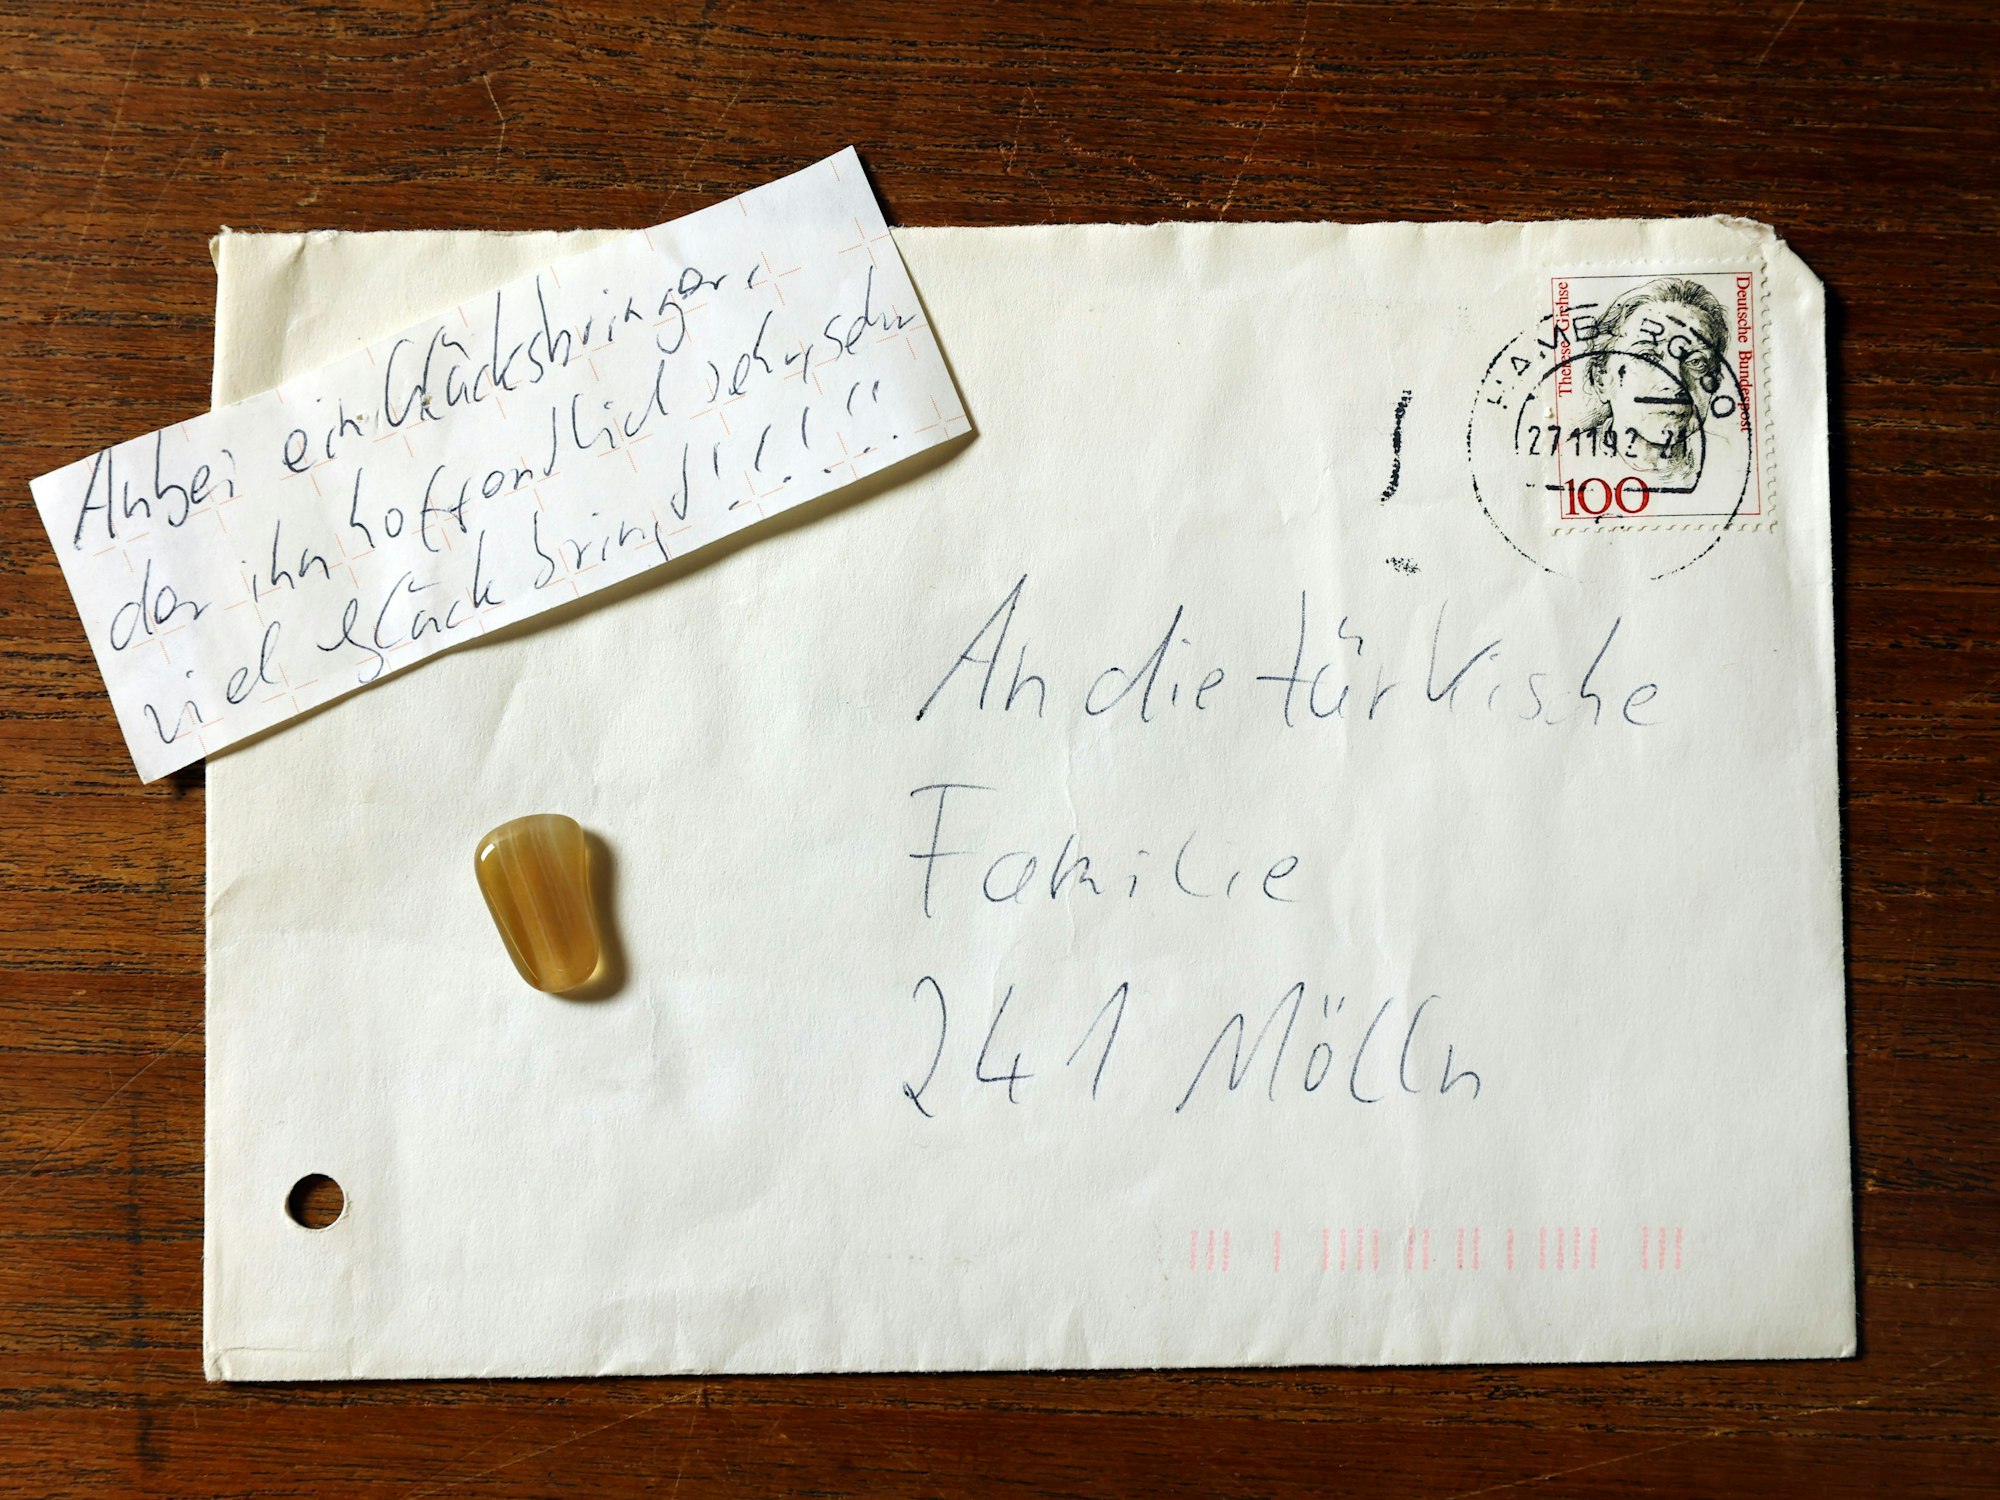 Anbei ein Glücksbringer,
der ihn hoffendlich sehr, sehr
viel glück bringd!!!!!
Deutsche Bundespost
Therese Giehse
100
27.11.92-21
An die türkische
Familie
241 Mölln